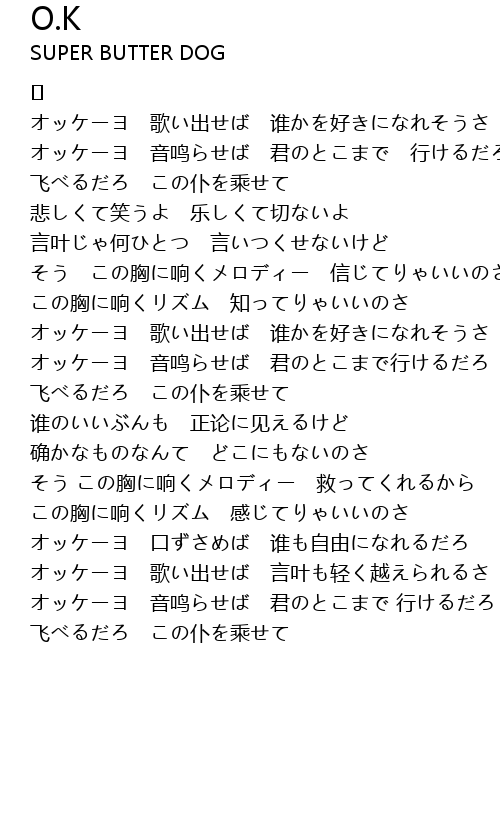 O.K
SUPER BUTTER DOG
オッケーヨ　歌い出せば　誰かを好きになれそうさ
オッケーヨ　音鸣らせば　君のとこまで　行けるだろ
飞べるだろ　この仆を乗せて
悲しくて笑うよ　乐しくて切ないよ
言叶じゃ何ひとつ　言いつくせないけど
そう　この胸に响くメロディー　信じてりゃいいのさ
この胸に响くリズム　知ってりゃいいのさ
オッケーヨ　歌い出せば　誰かを好きになれそうさ
オッケーヨ　音鸣らせば　君のとこまで行けるだろ
飞べるだろ　この仆を乗せて
谁のいいぶんも　正论に见えるけど
确かなものなんて　どこにもないのさ
そう この胸に响くメロディー　救ってくれるから
この胸に响くリズム　感じてりゃいいのさ
オッケーヨ　口ずさめば　谁も自由になれるだろ
オッケーヨ　歌い出せば　言叶も轻く越えられるさ
オッケーヨ　音鸣らせば　君のとこまで 行けるだろ
飞べるだろ　この仆を乗せて